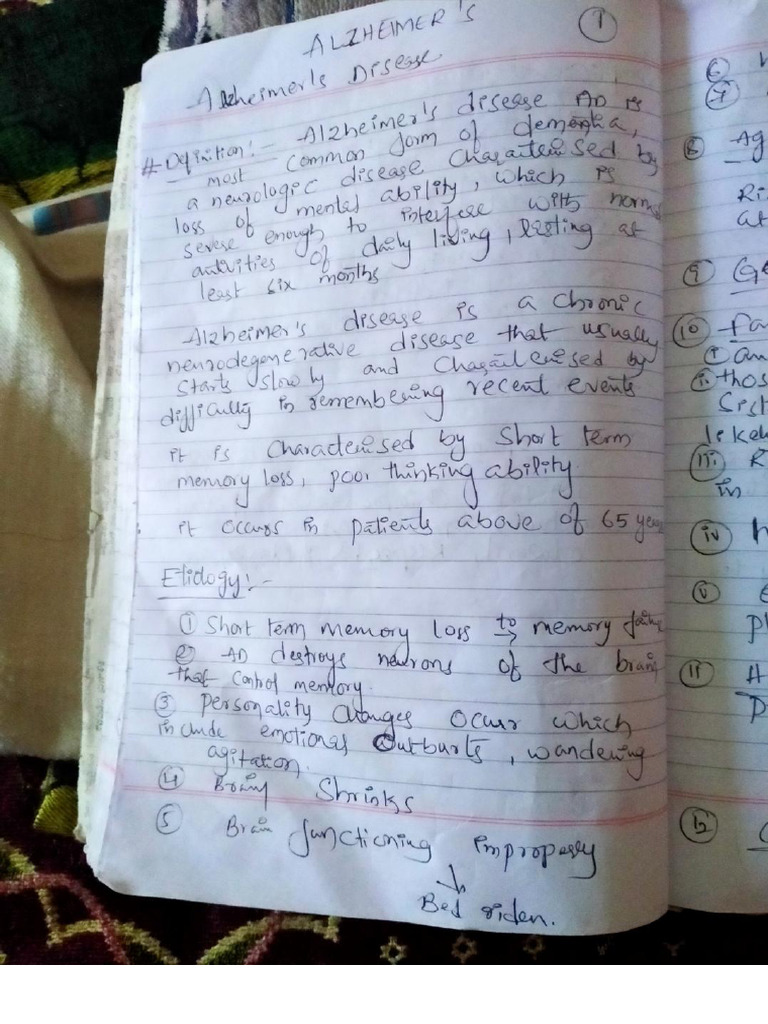 ALZHEIMER'S
1
Alzheimer's Disease
# Definition:- Alzheimer's disease AD is
most common form of dementia,
a neurologic disease characterised by
loss of mental ability, which is
severe enough to interfere with normal
activities of daily living, lasting at
least six months
Alzheimer's disease is a chronic
neurodegenerative disease that usually
starts slowly and characterised by
difficulty in remembering recent events
it is characterised by short term
memory loss, poor thinking ability
it occurs in patients above of 65 years
Etiology:-
① Short term memory loss to → memory
② AD destroys neurons of the brain
that control memory.
③ personality changes occur which
include emotional outburts, wandering
agitation.
④ Brain Shrinks
⑤ Brain functioning improperly
↓
Bed riden.
⑥
⑦
⑧ Ag
Ri
at
⑨ Ge
⑩ Fa
① an
ii thos
Sist
likel
iii R
in
iv
v
Pl
11
12